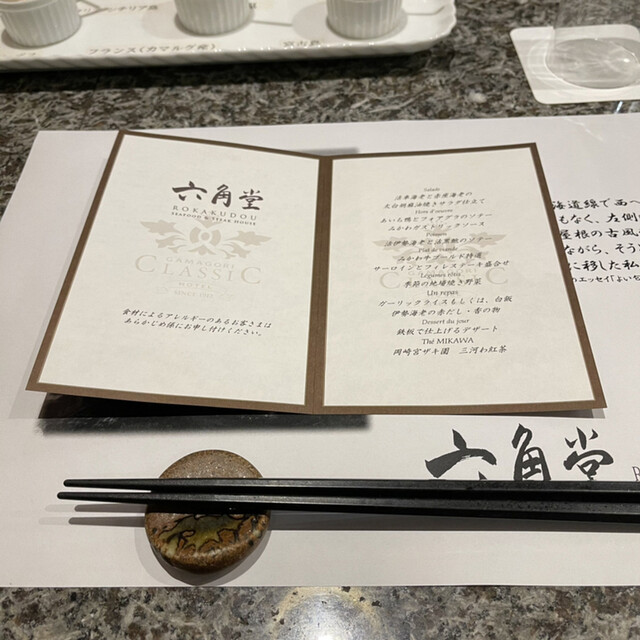 フランス(カマルグ産)
六角堂
ROKAKUDOU
SEAFOOD & STEAK HOUSE
GAMAGORI
CLASSIC
HOTEL
SINCE 1912
食材によるアレルギーのあるお客さまは
あらかじめ係にお申し付けください。
Salade
太白胡麻油焼きサラダ仕立て
Hors d'œuvre
あいち鴨とフォアグラのソテー
みかわガストリックソース
Poisson
みかわ牛ゴールド特選
サーロインとフィレステーキ盛合せ
Légumes rôtis
季節の地場焼き野菜
Un repas
ガーリックライスもしくは、白飯
伊勢海老の赤だし・香の物
Dessert du jour
鉄板で仕上げるデザート
Thé MIKAWA
岡崎宮ザキ園 三河わ紅茶
海道線で西へ
もなく、左側
屋根の古風
ながら、そう
に移した私
六角堂